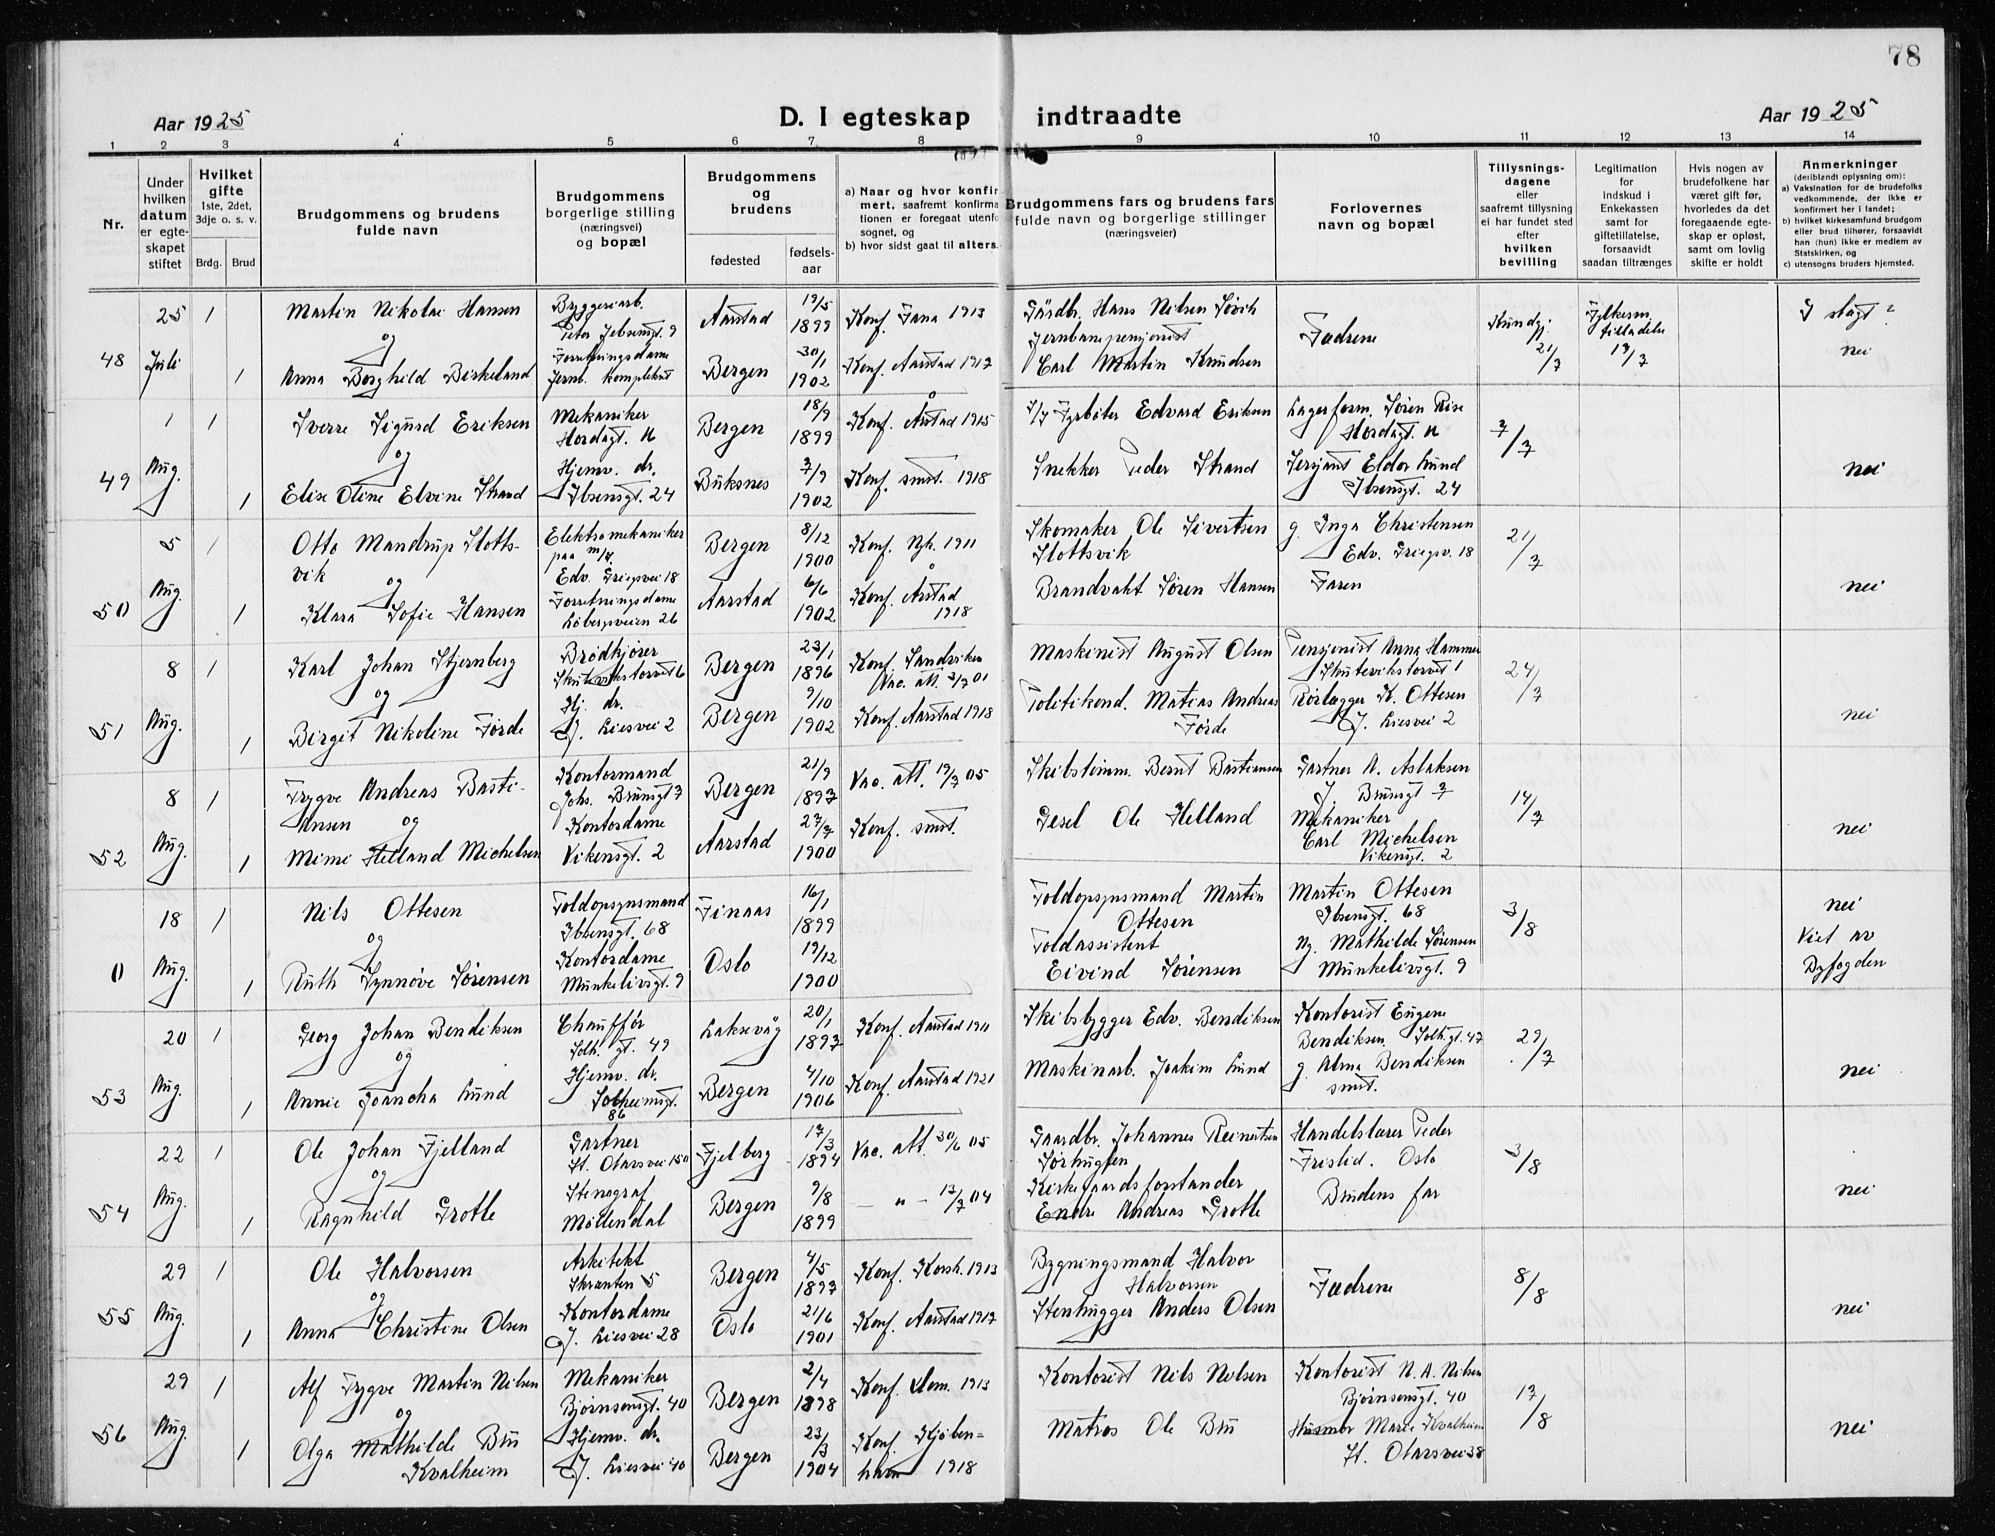 78
Aar 1925
D. I egteskap indtraadte
Aar 1925
1 2 3 4 5 6 7 8 9 10 11 12 13 14
Nr.
Under hvilken datum er egteskapet stiftet
Hvilket gifte 1ste, 2det, 3dje o. s. v.
Brdg. Brud
Brudgommens og brudens fulde navn
Brudgommens borgerlige stilling (næringsvei) og bopæl
Brudgommens og brudens
fødested
fødselsaar
a) Naar og hvor konfirmert, saafremt konfirmationen er foregaat utenfor sognet, og
b) hvor sidst gaat til alters.
Brudgommens fars og brudens fars fulde navn og borgerlige stillinger (næringsveier)
Forlovernes navn og bopæl
Tillysningsdagene eller saafremt tillysning ei har fundet sted efter hvilken bevilling
Legitimation for indskud i Enkekassen samt for giftetillatelse, forsaavidt saadan tiltrænges
Hvis nogen av brudefolkene har været gift før, hvorledes da det foregaaende egteskap er opløst, samt om lovlig skifte er holdt
Anmerkninger (deriblandt oplysning om):
a) Vaksination for de brudefolks vedkommende, der ikke er konfirmert her i landet;
b) hvilket kirkesamfund brudgom eller brud tilhører, forsaavidt han (hun) ikke er medlem av Statskirken, og
c) utensogns bruders hjemsted.
48 25 Juli 1 Martin Nikolai Hansen Bryggeriarb. Peter Jebsensgt. 9 Aarstad 19/5 1899 Konf. Fana 1913 Gårdbr. Hans Nilsen Søvik Fædrene Kundgj. 21/7 Fylkesm. tilladelse 17/7 I slægt?
og
1 Anna Borghild Birkeland Forretningsdame Jernb. Komplekset Bergen 30/1 1902 Konf. Aarstad 1917 Jernbanepensjonist Carl Martin Knudsen nei
49 1 Aug. 1 Sverre Sigurd Eriksen Mekaniker Hordagt. 16 Bergen 18/9 1899 Konf. Årstad 1915 Fyrbøter Edvard Eriksen Lagerform. Søren Rise Hordagt. 7/7
og
1 Elise Oline Elvine Strand Hjemv. dr. Ibsensgt. 24 Buksnes 7/9 1902 Konf. smst. 1918 Snekker Peder Strand Sersjant Eldor Lund Ibsensgt. 24 nei
50 5 Aug. 1 Otto Mandrup Slottsvik Elektromekaniker paa m/s. Edv. Griegsvei 18 Bergen 8/12 1900 Konf. Nyk. 1911 Skomaker Ole Sivertsen Slottsvik g. Inga Christensen Edv. Griegsv. 18 21/7
og
1 Klara Sofie Hansen Forretningsdame Løbergsveien 26 Aarstad 6/6 1902 Konf. Årstad 1918 Brandvakt Søren Hansen Faren nei
51 8 Aug. 1 Karl Johan Stjernberg Brødkjører Skuteviksttorvet 6 Bergen 23/1 1896 Konf. Sandviken Vac. att. 3/7 01 Maskinist August Olsen Pensjonist Anna Hammer Skutevikstorvet 1 24/7
og
1 Birgit Nikoline Førde Hj. dr. J. Liesvei 2 Bergen 9/10 1902 Konf. Aarstad 1918 Politikond. Matias Andreas Førde Rørlegger K. Ottesen J. Liesvei 2 nei
52 8 Aug. 1 Trygve Andreas Bastiansen Kontormand Johs. Brunsgt 7 Bergen 21/9 1897 Vac. att. 19/7 05 Skibstømm. Bernt Bastiansen Gartner A. Aslaksen J. Brunsgt 7 14/7
og
1 Mimi Helland Michelsen Kontordame Vikensgt. 2 Aarstad 27/7 1900 Konf. smst. Gesel Ole Helland Mekaniker Carl Michelsen Vikensgt. 2 nei
0 18 Aug. 1 Nils Ottesen Toldopsynsmand Ibsensgt. 68 Finaas 16/1 1899 Toldopsynsmand Martin Ottesen Martin Ottesen Ibsensgt. 68 3/8 nei
og
1 Ruth Synnøve Sørensen Kontordame Munkelivsgt. 9 Oslo 19/12 1900 Toldassistent Eivind Sørensen Ng. Mathilde Sørensen Munkelivsgt. 9 Viet av Byfogden
53 20 Aug. 1 Georg Johan Bendiksen Chauffør Solh. gt. 49 Laksevåg 20/1 1897 Konf. Aarstad 1911 Skibsbygger Edv. Bendiksen Kontorist Eugene Bendiksen Solh.gt. 47 29/7
og
1 Annie Joancha Lund Hjemv. dr. Solheimsgt. 86 Bergen 4/10 1906 Konf. Aarstad 1921 Maskinarb. Joakim Lund g. Alma Bendiksen smst. nei
54 22 Aug. 1 Ole Johan Fjelland Gartner St. Olavsvei 150 Fjelberg 17/3 1894 Vac. att. 30/6 05 Gaardbr. Johannes Reinertsen Sørhugten Handelslærer Peder Frislid. Oslo 3/8
og
1 Ragnhild Grotle Stenograf Møllendal Bergen 9/8 1899 — " — 13/7 04 Kirkegaardsforstander Endre Andreas Grotle Brudens far nei
55 29 Aug. 1 Ole Halvorsen Arkitekt Skranten 5 Bergen 4/5 1897 Konf. Korsk. 1913 Bygningsmand Halvor Halvorsen Fædrene 8/8
og
1 Anna Christine Olsen Kontordame J. Liesvei 28 Oslo 21/6 1901 Konf. Aarstad 1917 Stenhugger Anders Olsen nei
56 29 Aug. 1 Alf Trygve Martin Nilsen Mekaniker Bjørnsonsgt. 40 Bergen 2/4 1898 Konf. Dom. 1913 Kontorist Nils Nilsen Kontorist N. A. Nilsen Bjørnsonsgt. 40 17/8
og
1 Olga Mathilde Bru Kvalheim Hjemv. dr. J. Liesvei 40 Bergen 23/3 1904 Konf. Kjøbenhavn 1918 Matros Ole Bru Husmor Marie Kvalheim St. Olavsvei 38 nei